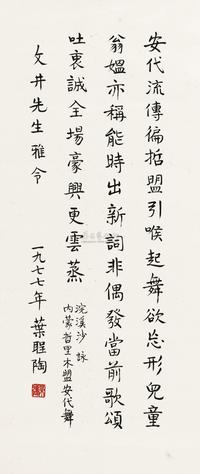 安代流傳徧哲盟引喉起舞欲忘形兒童
翁媼亦稱能時出新詞非偶發當前歌頌
吐衷誠全場豪興更雲蒸
浣溪沙 詠
内蒙哲里木盟安代舞
文井先生 雅令
一九七七年 葉聖陶